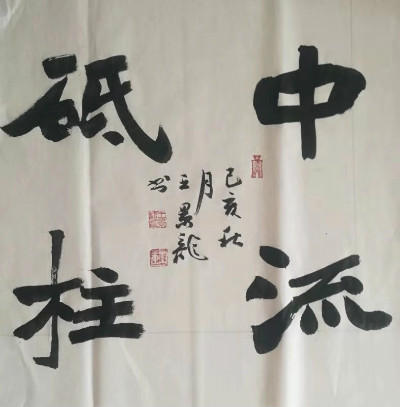 中流
砥柱
己亥秋
月
王景龍
书